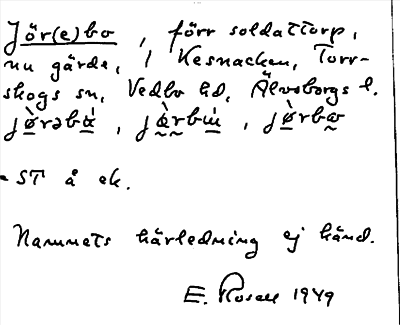 Jör(e)bo, förr soldattorp,
nu gärde, i Kesnacken, Torr-
skogs sn, Vedbo hd, Älvsborgs l.
- ST å ek.
Namnets härledning ej känd.
E. Rosell 1949